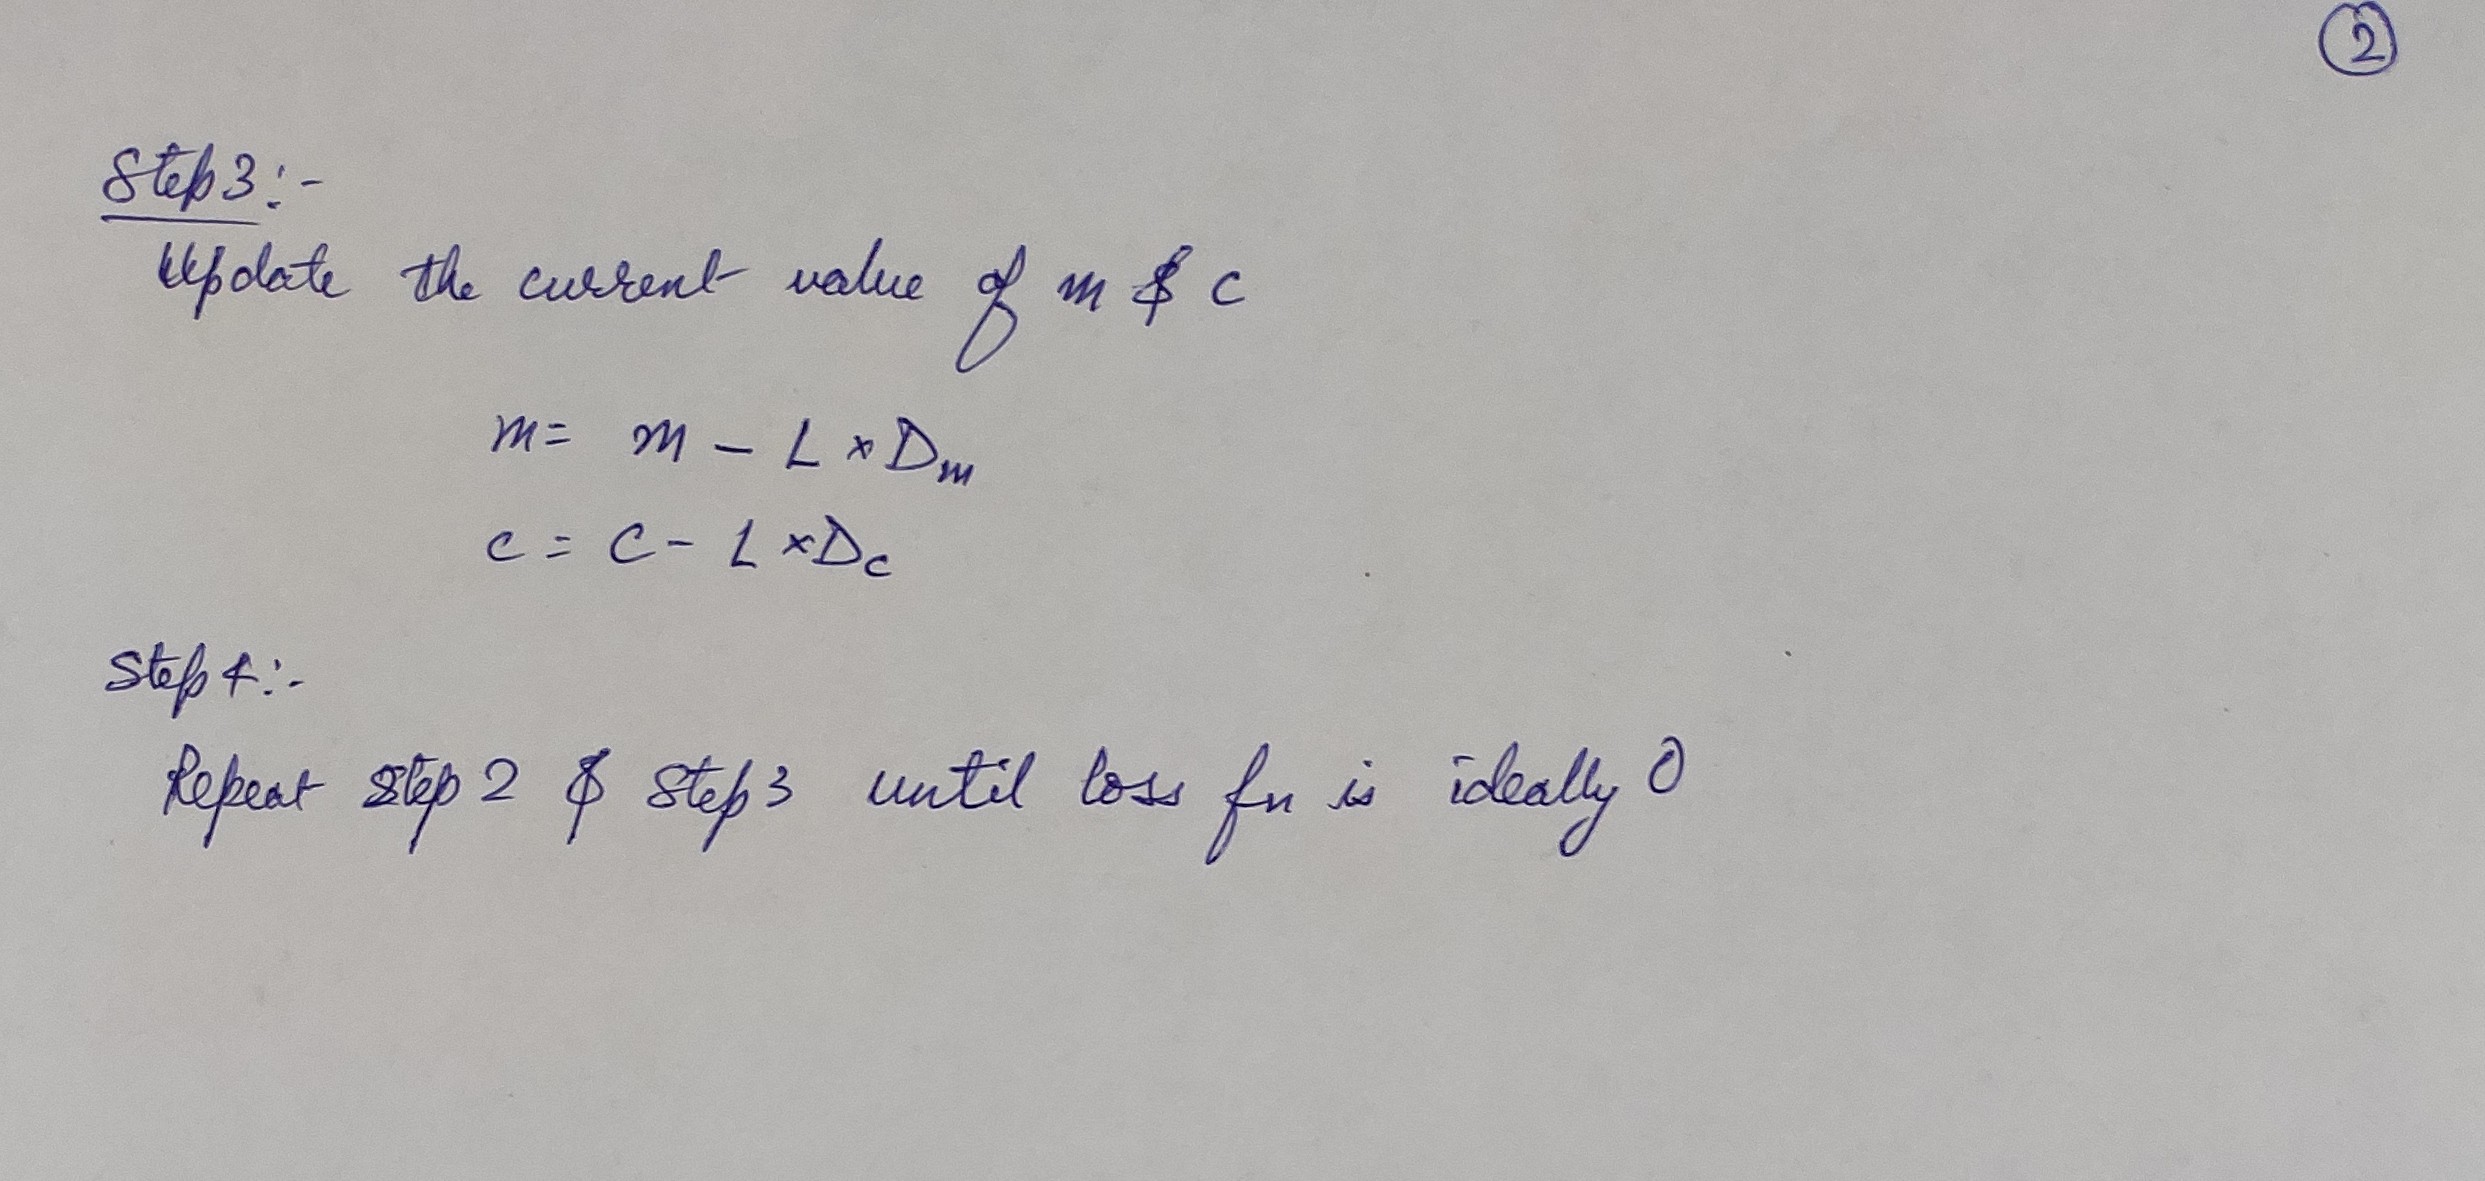 2
Step 3:-
Update the current value of m & c
m = m - L × Dm
c = c - L × Dc
Step 4:-
Repeat step 2 & step 3 until loss fn is ideally 0